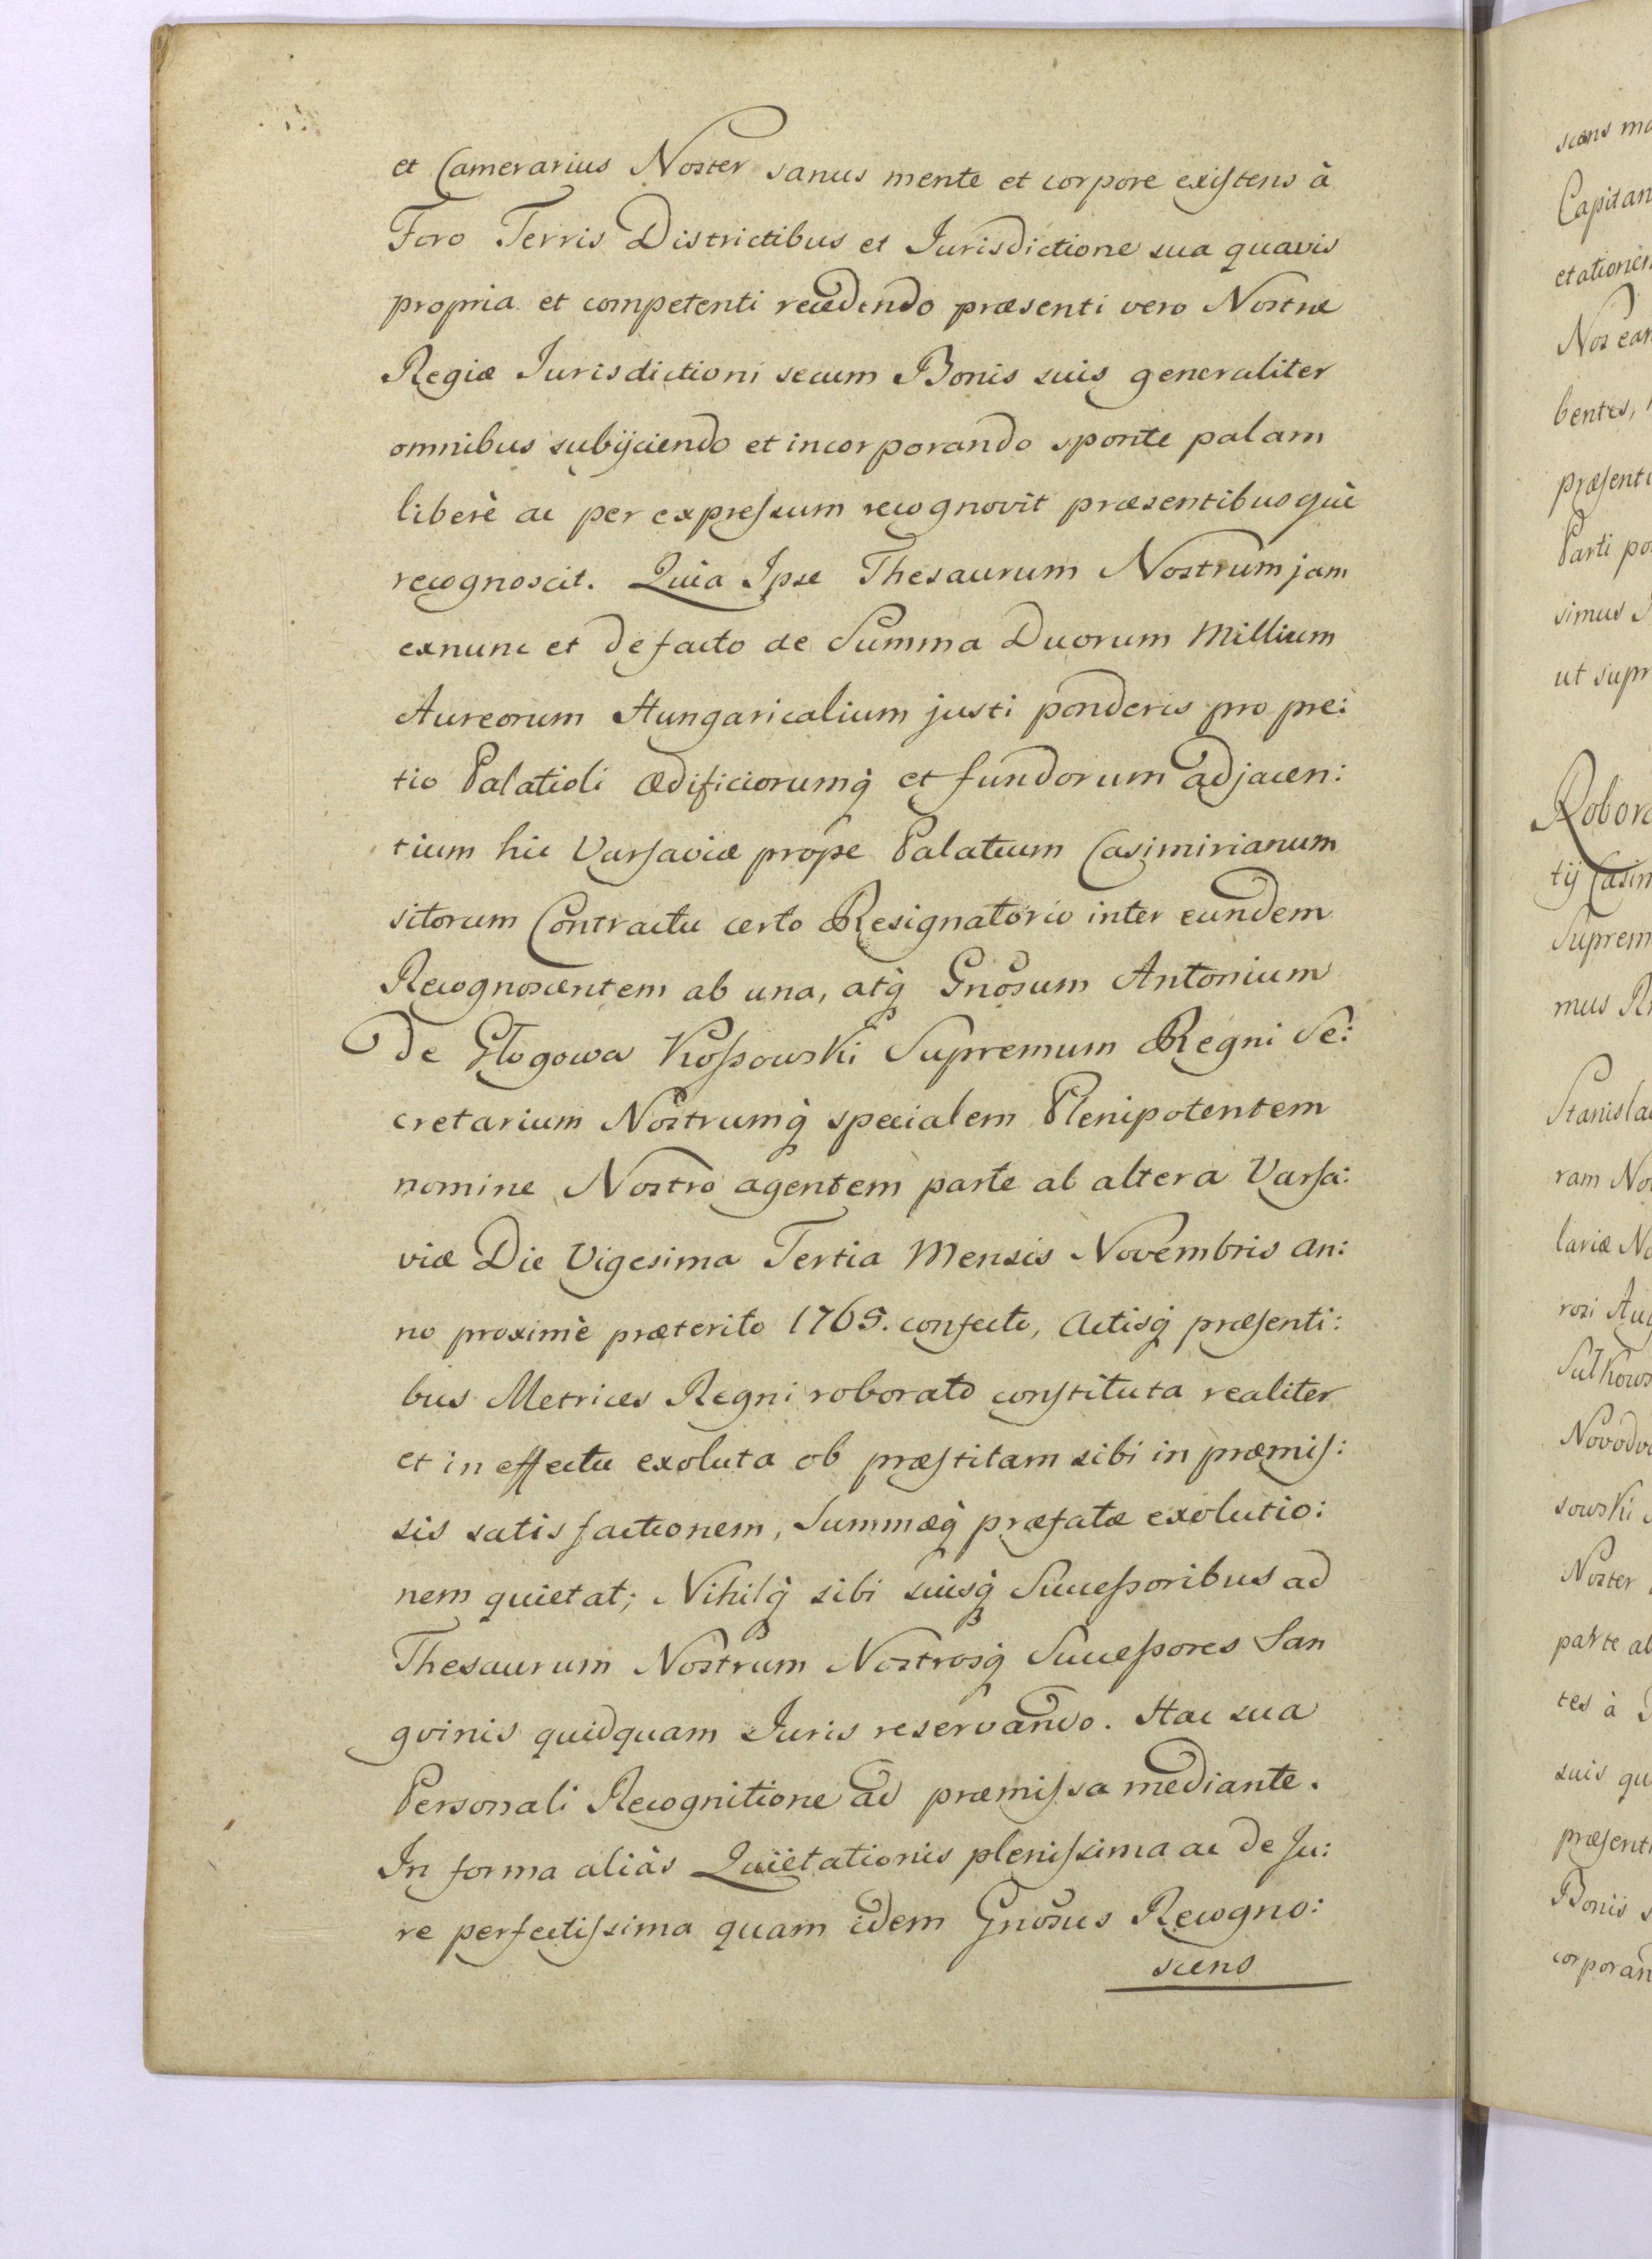 et Camerarius Noster sanus mente et corpore exiſtens à
Foro Terris Districtibus et Iurisdictione sua quavis
propria et competenti recedendo præsenti vero Nostræ
Regiæ Iurisdictioni secum Bonis suis generaliter
omnibus subijciendo et incorporando sponte palam
liberè ac per expreſsum recognovit præsentibusquè
recognoscit. Quia Ipse Thesaurum Nostrum jam
exnunc et de facto de Summa Duorum Millium
Aureorum Hungaricalium justi ponderis pro pre:
tio Palatioli Ædificiorumq̀ et fundorum adjacen:
tium hic Varſaviæ prope Palatium Casimirianum
sitorum Contractu certo Resignatorio inter eundem
Recognoscentem ab una, atq̀ Gnosum Antonium
De Głogowa Koſsowski Supremum Regni Se:
cretarium Nostrumq̀ specialem Plenipotentem
nomine Nostro agentem parte ab altera Varſa:
viæ Die Vigesima Tertia Mensis Novembris an:
no proximè præterito 1765. confecto, Actisq̀ præſenti:
bus Metrices Regni roborato conſtituta realiter
et in effectu exoluta ob præſtitam sibi in præmiſ:
sis satisfactionem, Summæq̀ præfatæ exolutio:
nem quietat; Nihilq̀ sibi suisq̀ Succeſsoribus ad
Thesaurum Nostrum Nostrosq̀ Succeſsores San
gvinis quidquam Iuris reservando. Hac sua
Personali Recognitione ad præmiſsa mediante.
In forma aliàs Quietationis pleniſsima ac de Ju:
re perfectiſsima quam idem Gnosus Recogno:
scens
scens
Capitan
etationem
Nos ean
bentes,
præſenti
Parti
simus
ut supr
Robora
tij Casim
Suprem
mus
Stanisla
ram
lariæ
rosi Aug
Sulkows
Novodvo
sowski
Noster
parte ab
tes à
suis qu
præſenti
Bonis
corporan